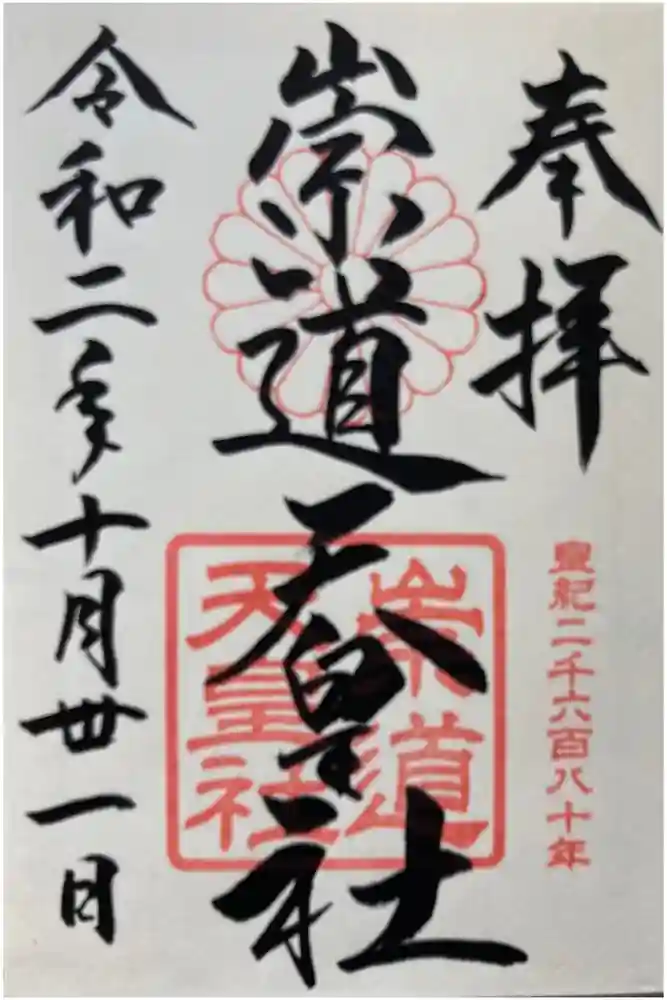 奉拝
皇紀二千六百八十年
崇道天皇社
崇道
天皇社
令和二年十月丗一日